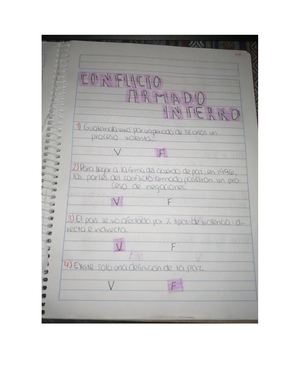 CONFLICTO
ARMADO
INTERNO
1) Guatemala vivió por un periodo de 36 años un
proceso violento.
V F
2) Para llegar a la firma del acuerdo de paz en
las partes del conflicto armado pasaron un pro
ceso de negociaciones.
V F
3) El país se vio afectado por 2 tipos de violencia di-
recta e indirecta.
V F
4) Existe solo una definición de la paz.
V F